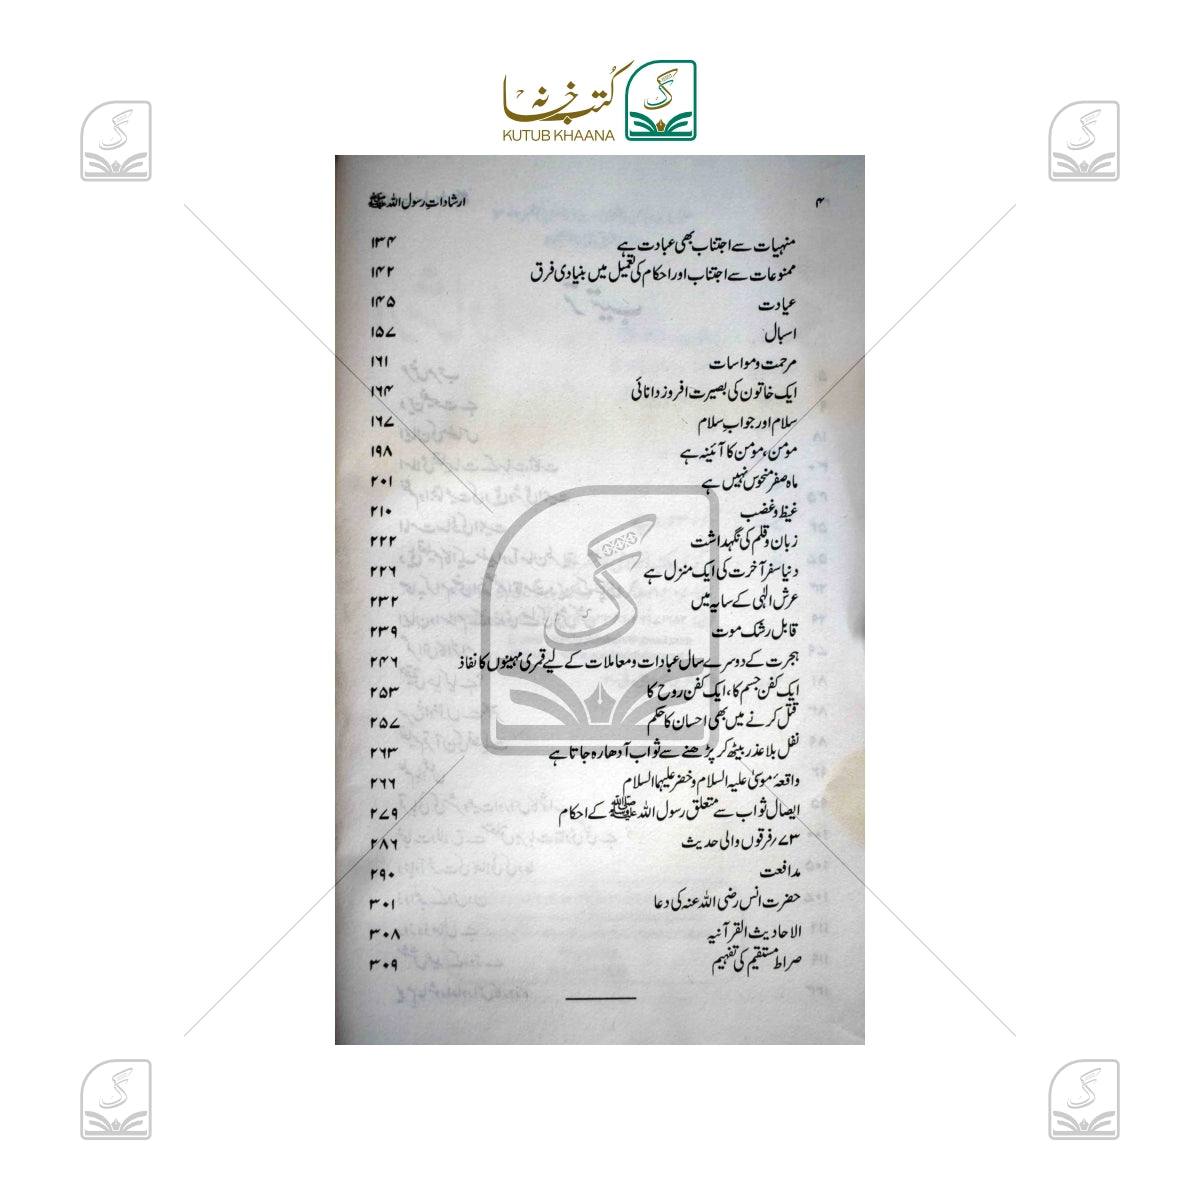 کُتب خانہ
KUTUB KHAANA
۴ ارشاداتِ رسول اللہ ﷺ
منہیات سے اجتناب بھی عبادت ہے ۱۳۴
ممنوعات سے اجتناب اور احکام کی تعمیل میں بنیادی فرق ۱۴۲
عیادت ۱۴۵
اسبال ۱۵۷
مرحمت و مواسات ۱۶۱
ایک خاتون کی بصیرت افروز دانائی ۱۶۴
سلام اور جوابِ سلام ۱۶۷
مومن، مومن کا آئینہ ہے ۱۹۸
ماہ صفر منحوس نہیں ہے ۲۰۱
غیظ و غضب ۲۱۰
زبان و قلم کی نگہداشت ۲۲۲
دنیا سفرِ آخرت کی ایک منزل ہے ۲۲۶
عرش الٰہی کے سایہ میں ۲۳۲
قابل رشک موت ۲۳۹
ہجرت کے دوسرے سال عبادات و معاملات کے لیے قمری مہینوں کا نفاذ ۲۴۶
ایک کفن جسم کا، ایک کفن روح کا ۲۵۳
قتل کرنے میں بھی احسان کا حکم ۲۵۷
نفل بلا عذر بیٹھ کر پڑھنے سے ثواب آدھا رہ جاتا ہے ۲۶۳
واقعۂ موسیٰ علیہ السلام و خضر علیہما السلام ۲۶۶
ایصال ثواب سے متعلق رسول اللہ ﷺ کے احکام ۲۷۹
۷۳؍ فرقوں والی حدیث ۲۸۶
مدافعت ۲۹۰
حضرت انس رضی اللہ عنہ کی دعا ۳۰۱
الاحادیث القرآنیہ ۳۰۸
صراط مستقیم کی تفہیم ۳۰۹